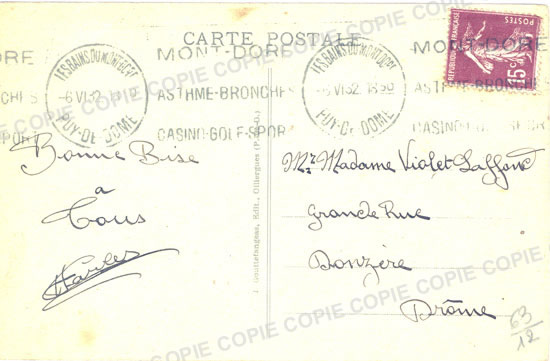 CARTE POSTALE
MONT-DORE
ASTHME-BRONCHES
CASINO-GOLF-SPOR
LES BAINS DU MONT-DORE
PUY-DE-DOME
-6 VI 32 18
LES BAINS DU MONT-DORE
-6 VI 32 18
PUY-DE-DOME
MONT-DORE
ASTHME-BRONCHES
CASINO-GOLF-SPOR
POSTES
RÉPUBLIQUE FRANÇAISE
15c
Bonne Bise
a
Tous
Mr. Madame Violet Laffont
Grande Rue
Donzère
Drôme
63/12
COPIE COPIE COPIE COPIE COPIE